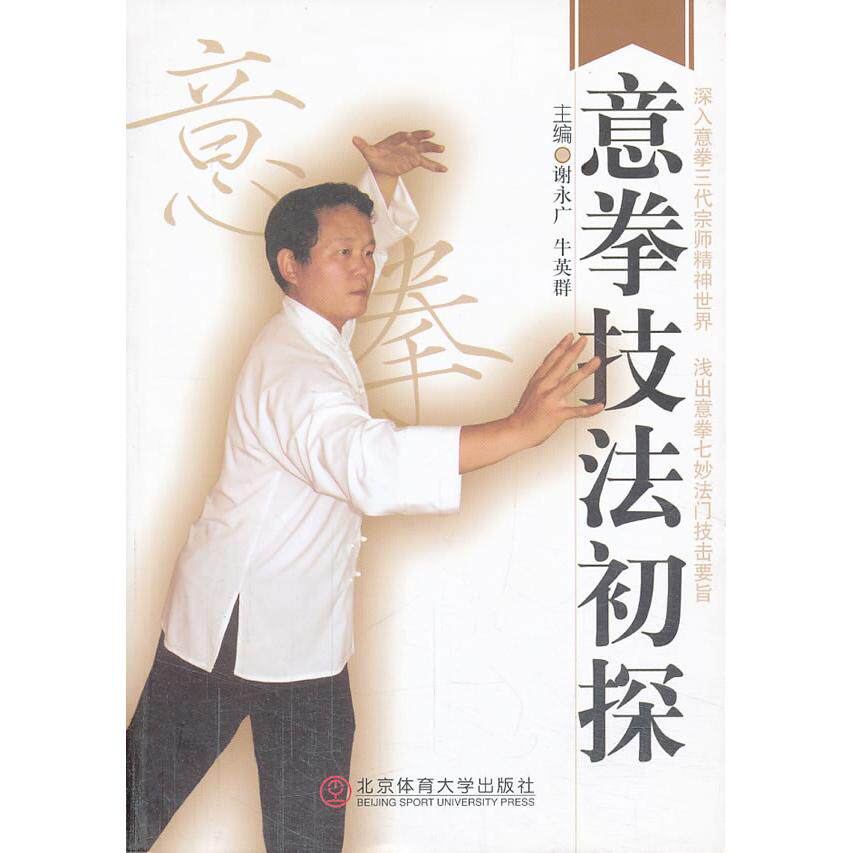 意拳
意拳技法初探
主编 谢永广 牛英群
深入意拳三代宗师精神世界 浅出意拳七妙法门技击要旨
北京体育大学出版社
BEIJING SPORT UNIVERSITY PRESS